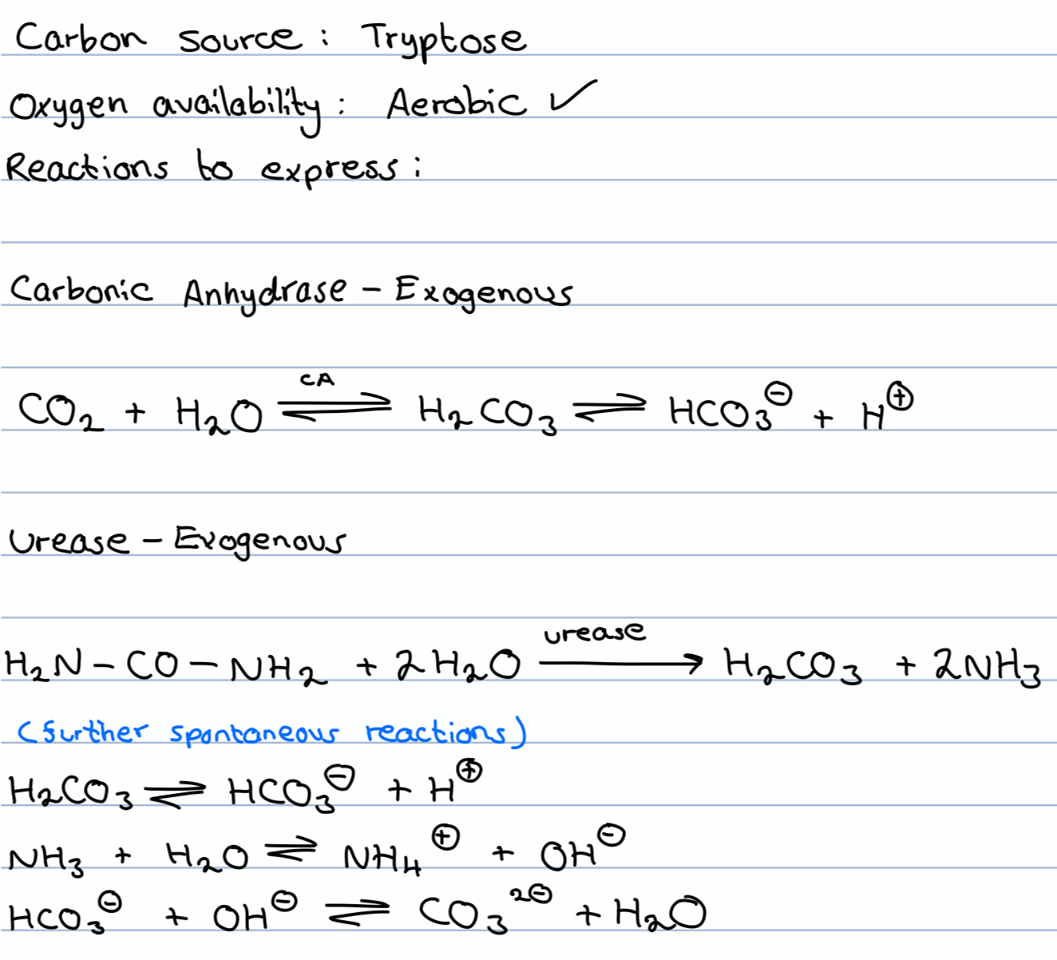 Carbon source: Tryptose
Oxygen availability: Aerobic ✓
Reactions to express:
Carbonic Anhydrase - Exogenous
CO₂ + H₂O ⇌ H₂CO₃ ⇌ HCO₃⊖ + H⊕
CA
Urease - Exogenous
H₂N - CO - NH₂ + 2H₂O → H₂CO₃ + 2NH₃
urease
(further spontaneous reactions)
H₂CO₃ ⇌ HCO₃⊖ + H⊕
NH₃ + H₂O ⇌ NH₄⊕ + OH⊖
HCO₃⊖ + OH⊖ ⇌ CO₃²⊖ + H₂O